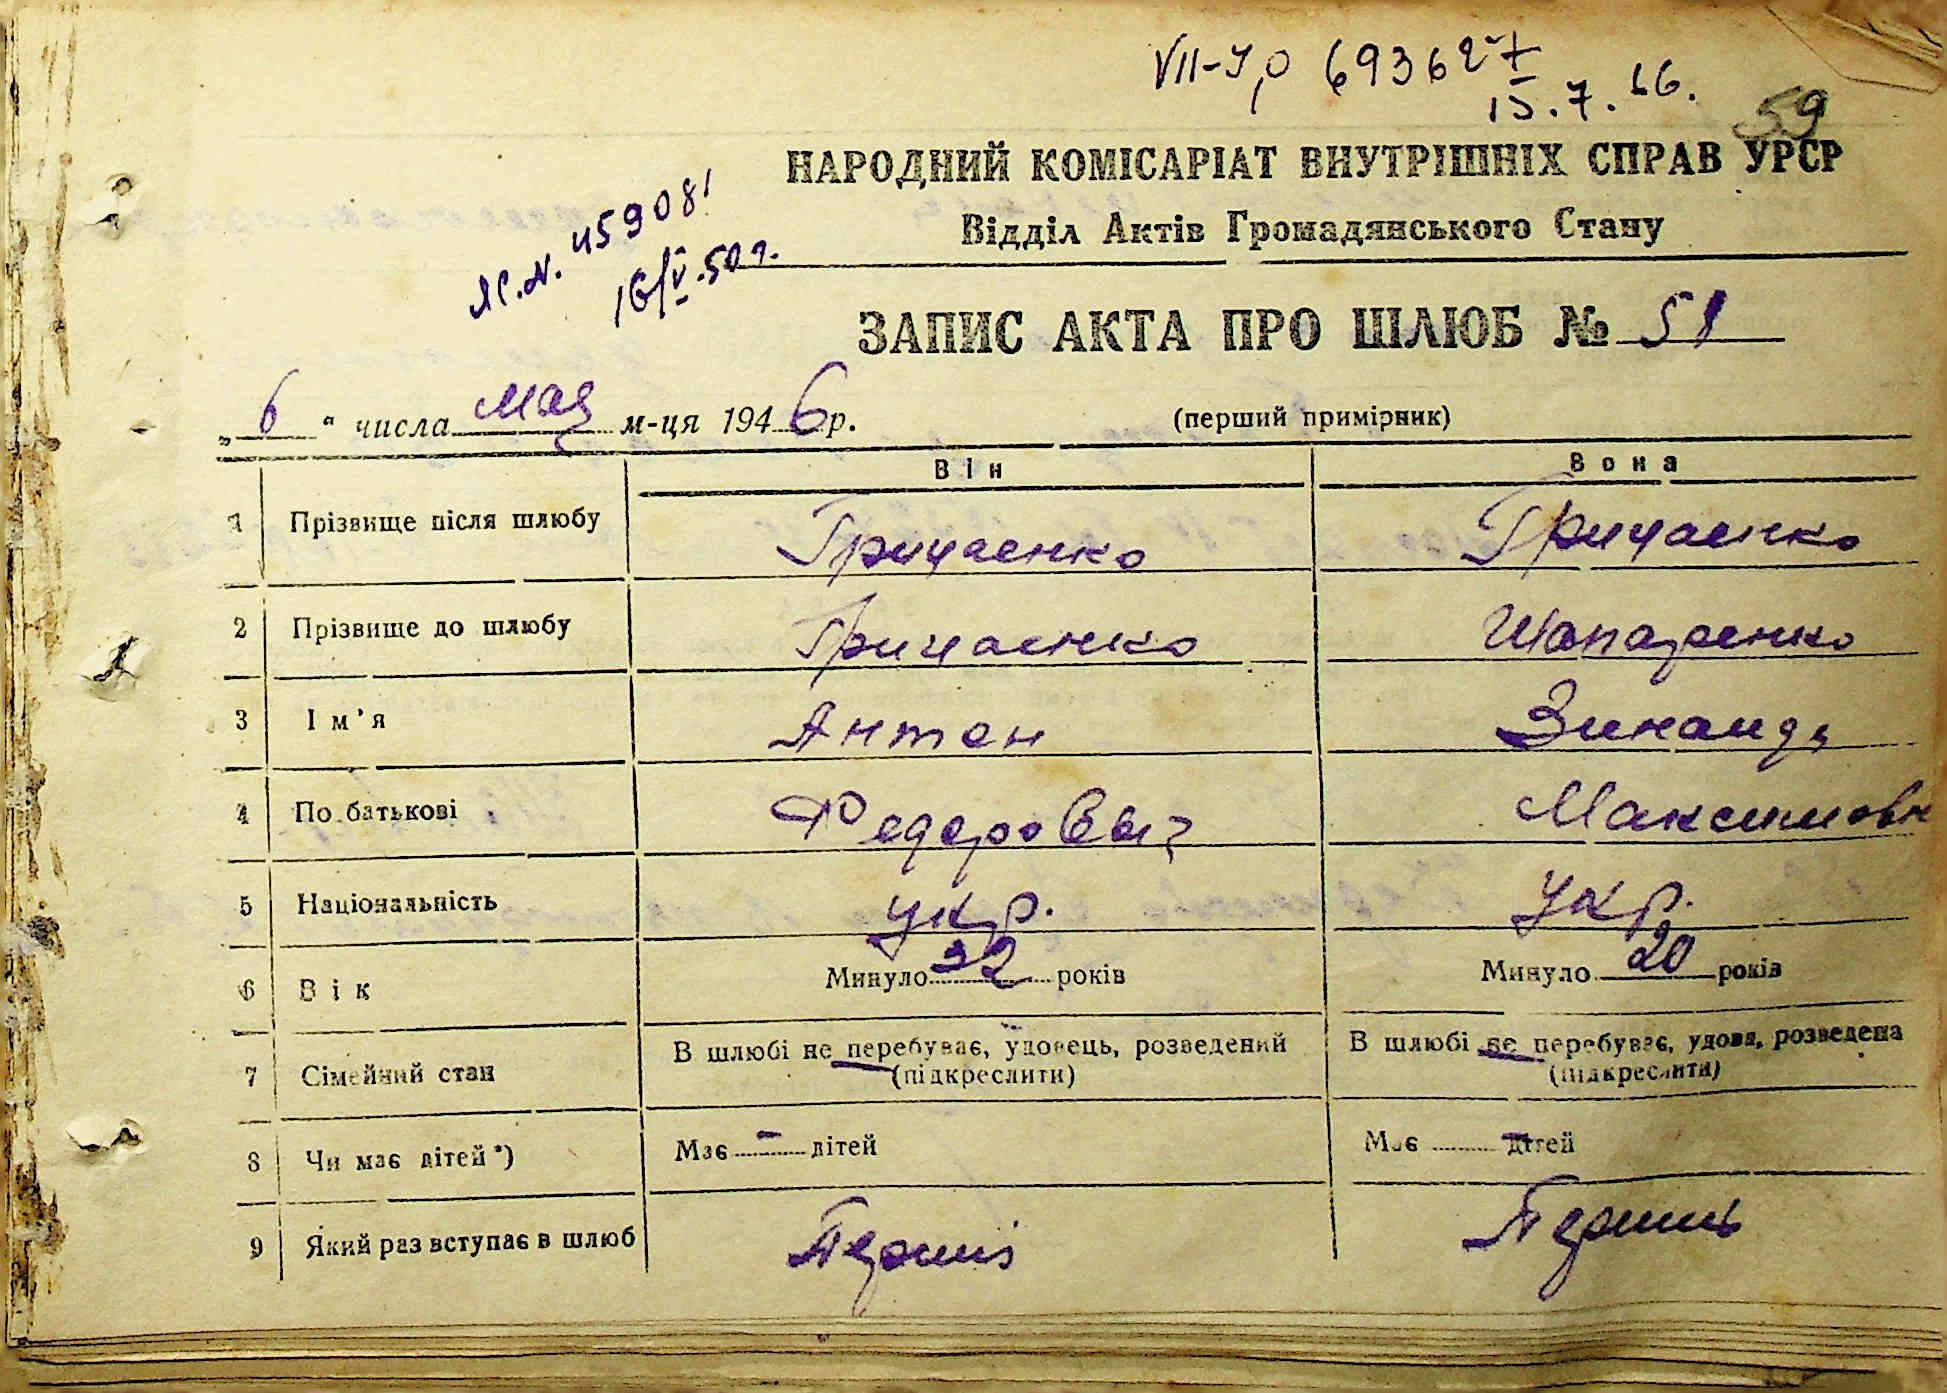 VII-УР 693627
15.7.66.
59
НАРОДНИЙ КОМІСАРІАТ ВНУТРІШНІХ СПРАВ УРСР
Відділ Актів Громадянського Стану
459081
16/V.50г.
ЗАПИС АКТА ПРО ШЛЮБ № 51
„6“ числа мая м-ця 1946 р. (перший примірник)
Він Вона
1 Прізвище після шлюбу Гричаенко Гричаенко
2 Прізвище до шлюбу Гричаенко Шапаренко
3 Ім'я Антон Зинаида
4 По батькові Федоровыч Максимовн
5 Національність укр. укр.
6 Вік Минуло 22 років Минуло 20 років
7 Сімейний стан В шлюбі не перебуває, удовець, розведений (підкреслити) В шлюбі не перебуває, удова, розведена (підкреслити)
8 Чи має дітей*) Має - дітей Має - дітей
9 Який раз вступає в шлюб Перший Перший